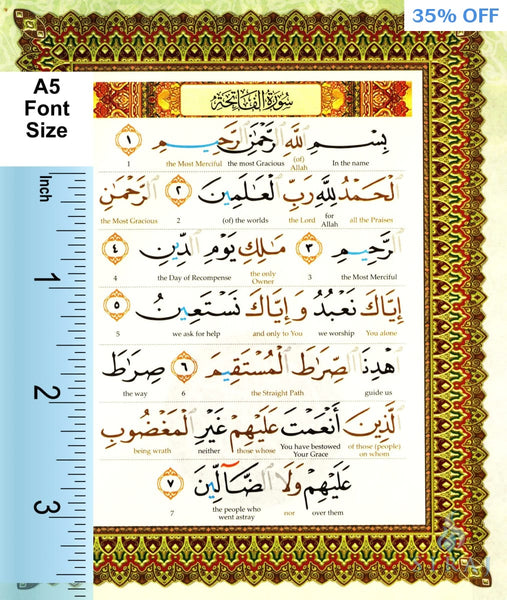 35% OFF
A5
Font
Size
Inch
1
2
3
سورة الفاتحة
بِسْمِ اللَّهِ الرَّحْمَٰنِ الرَّحِيمِ ١
the Most Merciful the most Gracious (of) Allah In the name
1
الْحَمْدُ لِلَّهِ رَبِّ الْعَالَمِينَ ٢ الرَّحْمَٰنِ
the Most Gracious 2 (of) the worlds the Lord for Allah all the Praises
الرَّحِيمِ ٣ مَالِكِ يَوْمِ الدِّينِ ٤
4 the Day of Recompense the only Owner 3 the Most Merciful
إِيَّاكَ نَعْبُدُ وَإِيَّاكَ نَسْتَعِينُ ٥
5 we ask for help and only to You we worship You alone
اهْدِنَا الصِّرَاطَ الْمُسْتَقِيمَ ٦ صِرَاطَ
the way 6 the Straight Path guide us
الَّذِينَ أَنْعَمْتَ عَلَيْهِمْ غَيْرِ الْمَغْضُوبِ
being wrath neither those whose You have bestowed Your Grace of those (people) on whom
عَلَيْهِمْ وَلَا الضَّالِّينَ ٧
7 the people who went astray nor over them